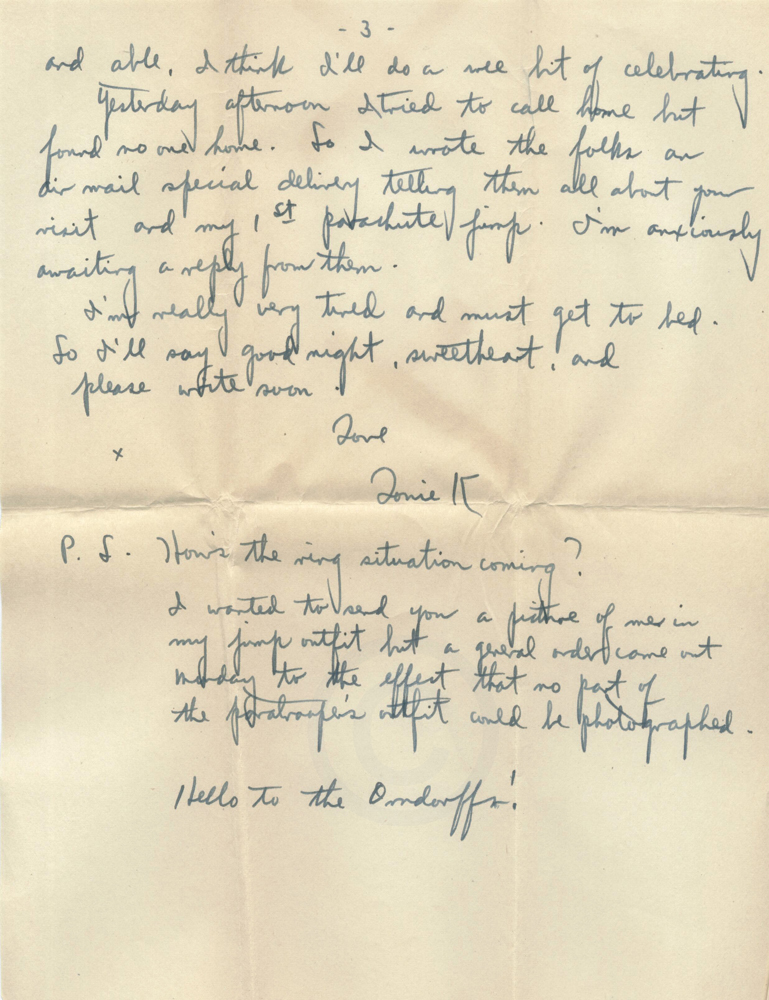 - 3 -
and able, I think I'll do a wee bit of celebrating.
Yesterday afternoon I tried to call home but
found no one home. So I wrote the folks an
air mail special delivery telling them all about your
visit and my 1st parachute jump. I'm anxiously
awaiting a reply from them.
I'm really very tired and must get to bed.
So I'll say good night, sweetheart, and
please write soon.
Love
x
Louie K
P. S. How's the ring situation coming?
I wanted to send you a picture of me in
my jump outfit but a general order came out
Monday to the effect that no part of
the paratrooper's outfit could be photographed.
Hello to the Orndorffs!